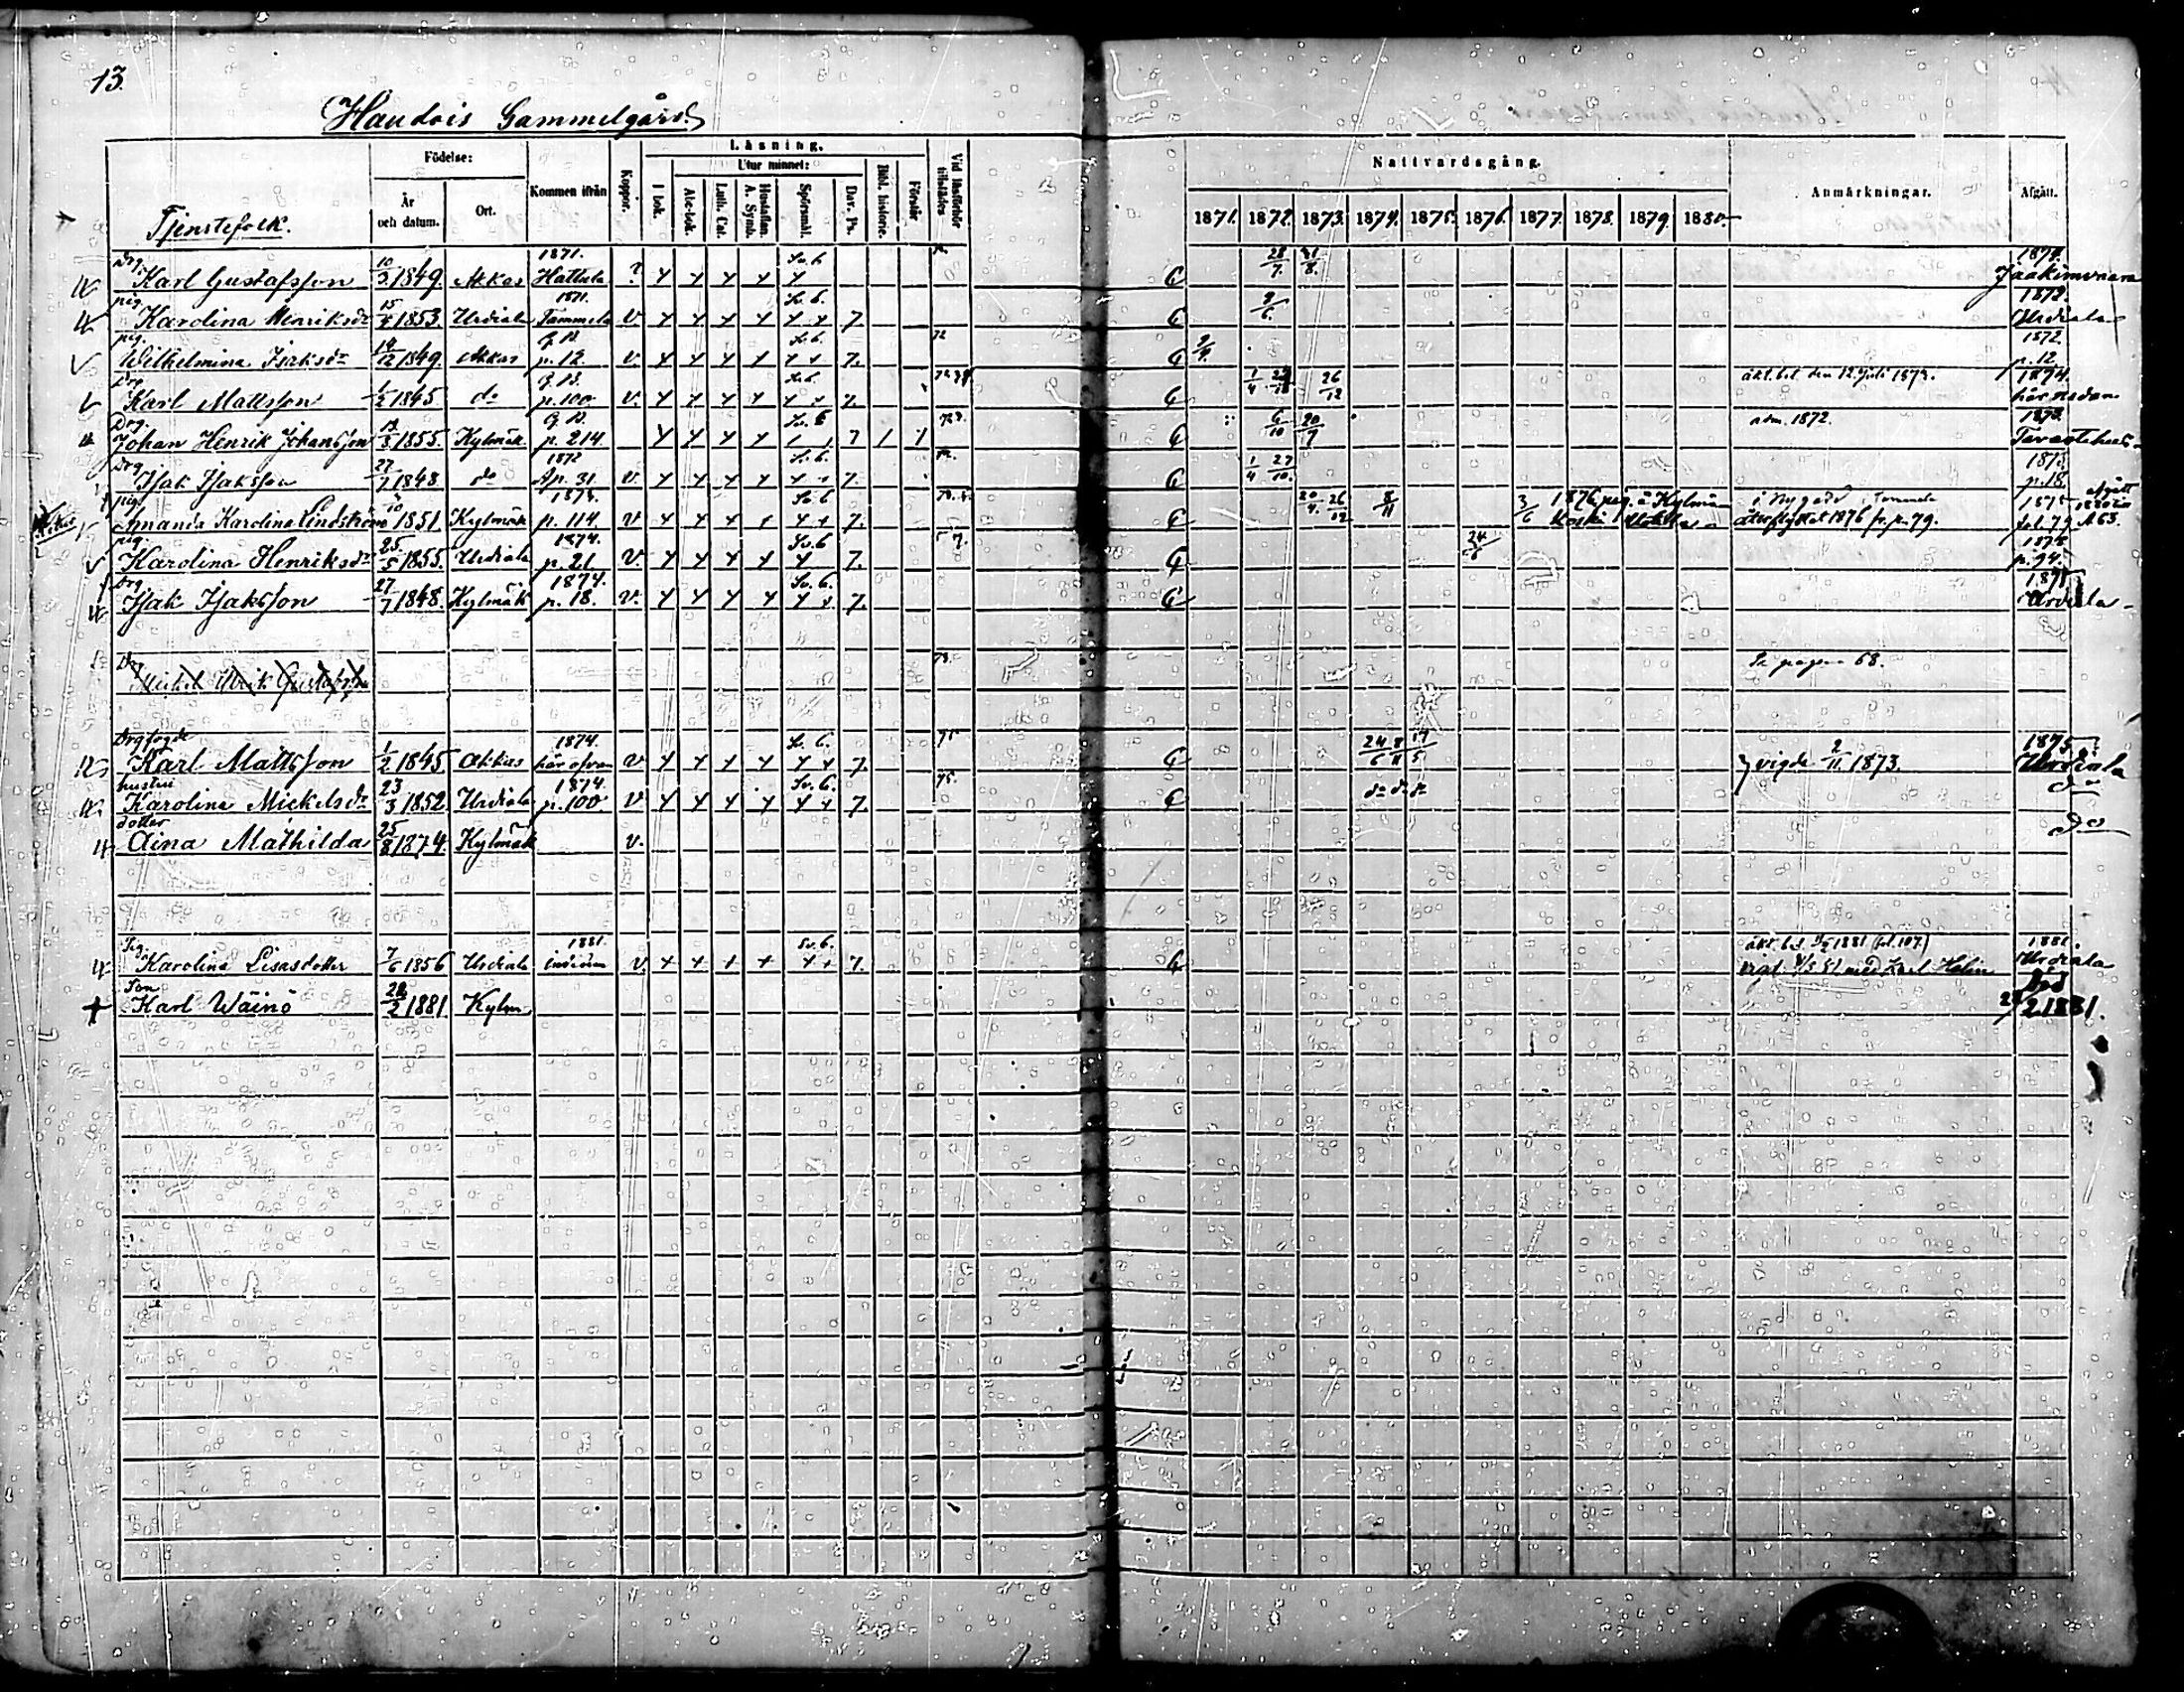 13.
Haudois Gammelgård
Tjenstefolk.
Födelse:
År och datum.
Ort.
Kommen ifrån
Koppor.
Läsning.
I bok.
Utur minnet:
Abc-bok.
Luth. Cat.
Hustaflan. A. Symb.
Spörsmål.
Dav. Ps.
Bibl. historie.
Förstår
Vid läsförhör tillstädes
Nattvardsgång.
1871. 1872. 1873. 1874. 1875. 1876. 1877. 1878. 1879. 1880.
Anmärkningar.
Afgått.
Drg. Karl Gustafsson 10/3 1849. Akkas 1871. Hattula ? Sv. 6 28/7. 31/8. 1874. Jaakimvaara
pig. Karolina Henriksdr 15/4 1853. Urdiala 1871. Tammela v. Sv. 6. 7. 9/6. 1872. Urdiala
pig. Wilhelmina Isaksdr 14/12 1849. Akkas p. 12. v. Sv. 6. 7. 72 1872. p. 12
Drg Karl Mattsson 1/2 1845. do p. 100. v. Sv. 6. 7. 1/4 26/12 äkt. bet. den 12 Juli 1873. 1874. här nedan
Drg. Johan Henrik Johansson 1855. Kylmäk. p. 214. Sv. 6 7 6/10 20/7 adm. 1872. 1873. Tavastehus
Drg Isak Isaksson 27/7 1848 do 1872 Ap. 31 v. Sv. 6. 7. 1/4 27/10. 1873. p. 18.
pig. Amanda Karolina Lindström 1851. Kylmäk 1873. p. 114. v Sv. 6 7. 20/4. 26/12 8/11 3/6 1876 pig. å Kylmä Koski återflyttat 1876 fr. p. 79. 1875 fol. 79
pig. Karolina Henriksdr 25/5 1855. Urdiala 1874. p. 21. v. Sv. 6 7. 24/6 1875 p. 94.
Drg Isak Isaksson 27/7 1848. Kylmäk 1874. p. 18. v. Sv. 6. 7. 1875 Urdiala
Drg Mickel Henrik Gustafsson 73. Se pagina 68.
Drgfogde Karl Mattsson 1/2 1845. Akkas 1874. här ofvan v. Sv. 6. 7. 75 24/6 8/11 17/5 vigde 2/11. 1873. 1875. Urdiala
hustru Karolina Mickelsdr 23/3 1852. Urdiala 1874. p. 100 v Sv. 6. 7. 75. do do do do
dotter Aina Mathilda 25/8 1874. Kylmäk v. do
Pig. Karolina Lisasdotter 7/6 1856 Urdiala 1881. v. Sv. 6. 7. 1881 (fol. 107.) vigt. 4/3 81 med Karl Helin 1881. Urdiala
Son Karl Wäinö 1881. Kylm Död /2 1881.